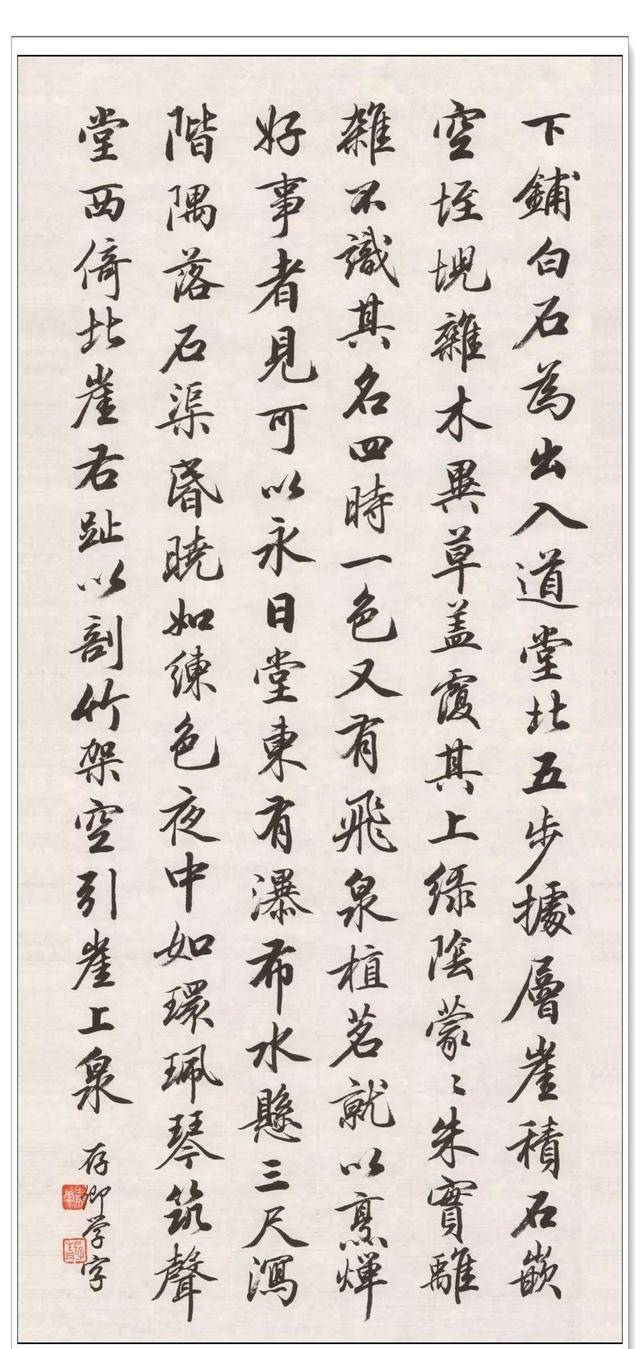 下鋪白石為出入道堂北五步據層崖積石嵌
空垤堄雜木異草蓋覆其上綠陰蒙〻朱實離
離不識其名四時一色又有飛泉植茗就以烹燀
好事者見可以永日堂東有瀑布水懸三尺瀉
階隅落石渠昏曉如練色夜中如環珮琴筑聲
堂西倚北崖右趾以剖竹架空引崖上泉
存卿学字